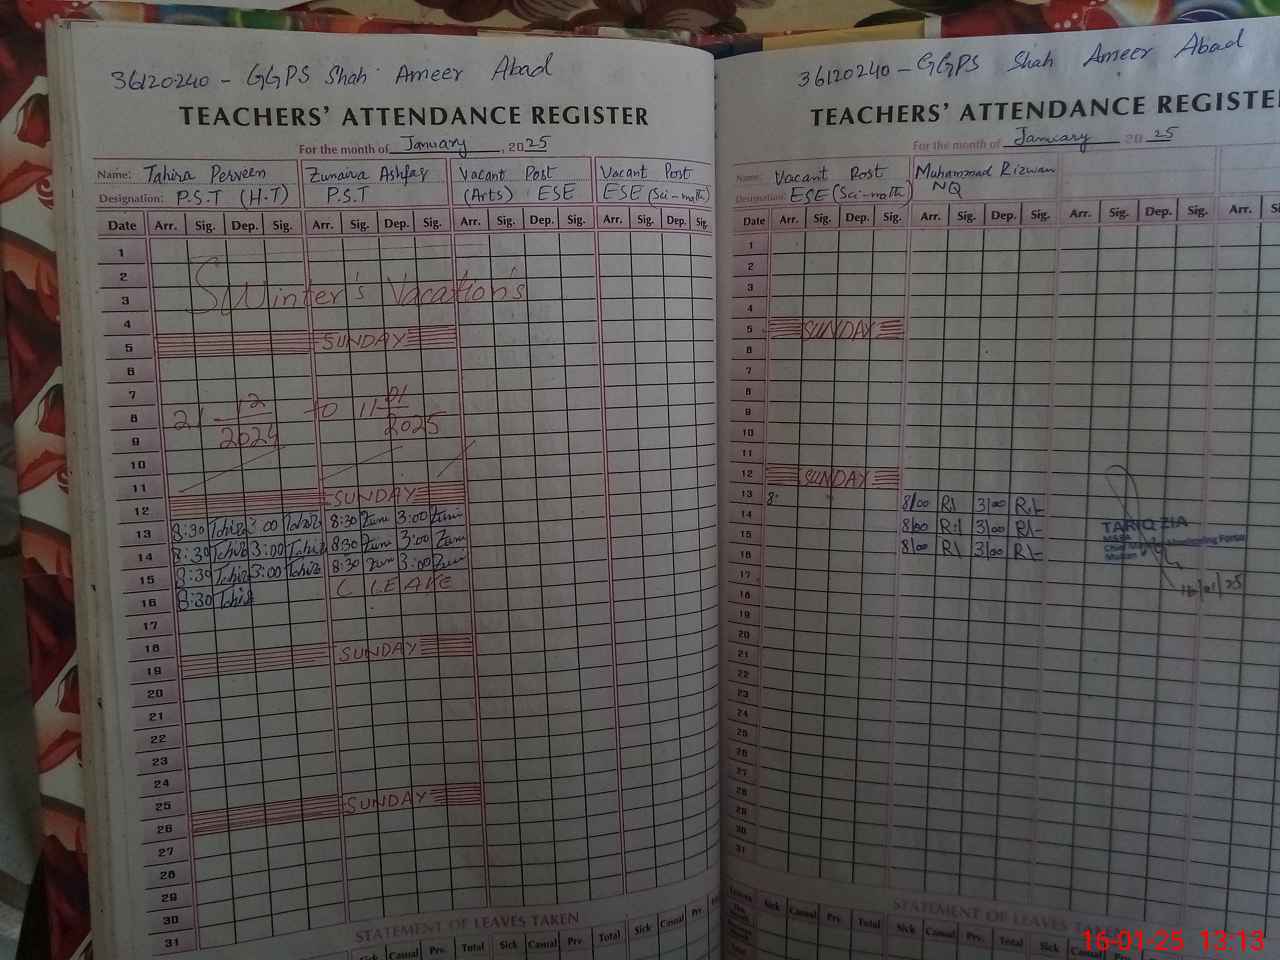 36120240 - GGPS Shah Ameer Abad
TEACHERS' ATTENDANCE REGISTER
For the month of January, 2025
Name: Tahira Perveen Zunaira Ashfaq Vacant Post Vacant Post
Designation: P.S.T (H.T) P.S.T (Arts) ESE ESE (Sci-math)
Date Arr. Sig. Dep. Sig. Arr. Sig. Dep. Sig. Arr. Sig. Dep. Sig. Arr. Sig. Dep. Sig.
1
2
3 Winter's Vacations
4
5 SUNDAY
6
7
8 21 12/2024 to 11 01/2025
9
10
11
12 SUNDAY
13 8:30 Tahira 3:00 Tahira 8:30 Zuni 3:00 Zuni
14 8:30 Tahira 3:00 Tahira 8:30 Zuni 3:00 Zuni
15 8:30 Tahira 3:00 Tahira 8:30 Zuni 3:00 Zuni
16 8:30 Tahira C LEAVE
17
18
19 SUNDAY
20
21
22
23
24
25
26 SUNDAY
27
28
29
30
31
STATEMENT OF LEAVES TAKEN
Sick Casual Prv. Total Sick Casual Prv. Total Sick Casual Prv.
36120240 - GGPS Shah Ameer Abad
TEACHERS' ATTENDANCE REGISTE
For the month of January 2025
Name: Vacant Post Muhammad Rizwan
Designation: ESE (Sci-math) NQ
Date Arr. Sig. Dep. Sig. Arr. Sig. Dep. Sig. Arr. Sig. Dep. Sig. Arr. Si
1
2
3
4
5 SUNDAY
6
7
8
9
10
11
12 SUNDAY
13 8: 8/00 R1 3/00 R1
14 8/00 R1 3/00 R1
15 8/00 R1 3/00 R1
16
17
18
19
20
21
22
23
24
25
26
27
28
29
30
31
TARIQ ZIA
MEA
Monitoring Force
Multan
16/01/25
STATEMENT OF LEAVES TAKEN
Sick Casual Prv. Total Sick Casual Prv. Total Sick
16-01-25 13:13